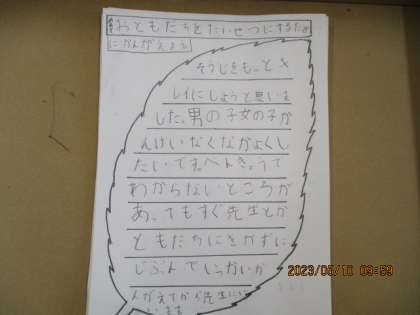 おともだちをたいせつにするため
にかんがえよう
そうじをもっとキ
レイにしようと思いま
した。男の子女の子か
んけいなくなかよくし
たいです。べんきょうで
わからないところが
あってもすぐ先生とか
ともだちにきかずに
じぶんでいっかいか
んがえてから先生にい
います
2023/05/10 09:59